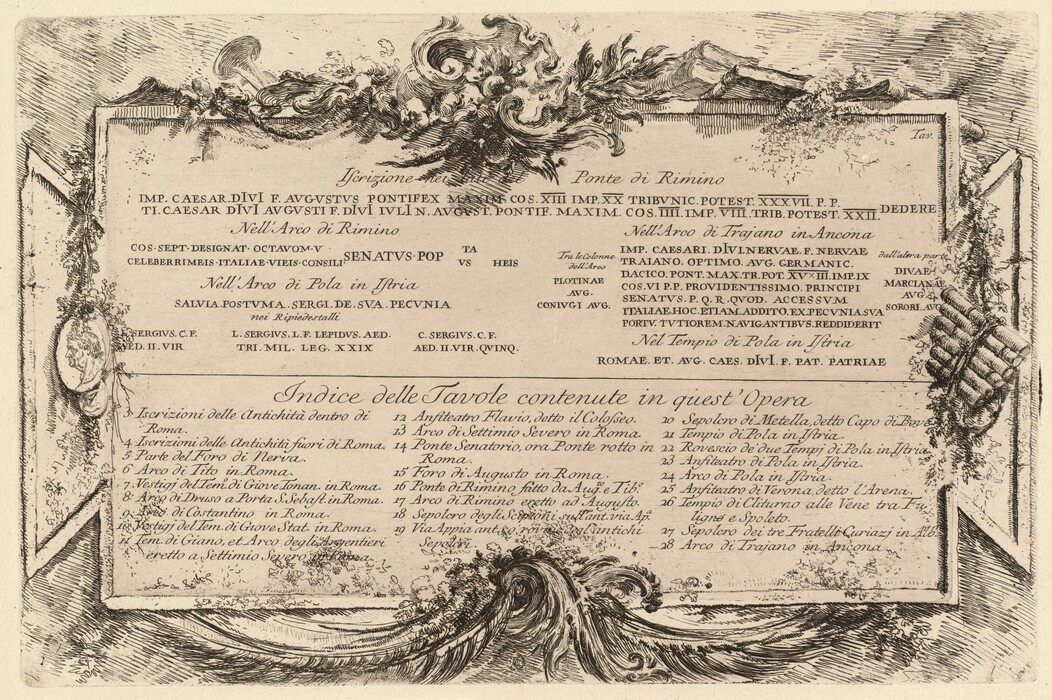 Tav.
Iscrizione nei Ponte di Rimino
IMP. CAESAR. DIVI F. AVGVSTVS PONTIFEX MAXIM. COS. XIII IMP. XX TRIBVNIC. POTEST. XXXVII. P. P.
TI. CAESAR DIVI AVGVSTI F. DIVI IVLI N. AVGVST. PONTIF. MAXIM. COS. IIII. IMP. VIII. TRIB. POTEST. XXII. DEDERE
Nell'Arco di Rimino
COS · SEPT · DESIGNAT · OCTAVOM · V TA
CELEBERRIMEIS · ITALIAE · VIEIS · CONSILI SENATVS · POP VS HEIS
Nell'Arco di Pola in Istria
SALVIA. POSTVMA. SERGI. DE. SVA. PECVNIA
nei Ripiedestalli
L. SERGIVS. C. F. L. SERGIVS. L. F. LEPIDVS. AED. C. SERGIVS. C. F.
AED. II. VIR TRI. MIL. LEG. XXIX AED. II. VIR. QVINQ.
Nell'Arco di Trajano in Ancona
Tra le Colonne
dell'Arco
PLOTINAE
AVG.
CONIVGI AVG.
IMP. CAESARI. DIVI. NERVAE. F. NERVAE
TRAIANO. OPTIMO. AVG. GERMANIC.
DACICO. PONT. MAX. TR. POT. XVIII. IMP. IX
COS. VI P. P. PROVIDENTISSIMO. PRINCIPI
SENATVS. P. Q. R. QVOD. ACCESSVM
ITALIAE. HOC. ETIAM. ADDITO. EX. PECVNIA. SVA
PORTV. TVTIOREM. NAVIGANTIBVS. REDDIDERIT
dall'altra parte
DIVAE
MARCIANAE
AVG.
SORORI. AVG
Nel Tempio di Pola in Istria
ROMAE. ET. AVG. CAES. DIVI. F. PAT. PATRIAE
Indice delle Tavole contenute in quest'Opera
3 Iscrizioni delle Antichità dentro di
Roma.
4 Iscrizioni delle Antichità fuori di Roma.
5 Parte del Foro di Nerva.
6 Arco di Tito in Roma.
7 Vestigj del Tem. di Giove Tonan. in Roma.
8 Arco di Druso a Porta S. Sebast. in Roma.
9 Arco di Costantino in Roma.
10 Vestigj del Tem. di Giove Stat. in Roma.
11 Tem. di Giano, et Arco degli Argentieri
eretto a Settimio Severo in Roma.
12 Anfiteatro Flavio, detto il Colosseo.
13 Arco di Settimio Severo in Roma.
14 Ponte Senatorio, ora Ponte rotto in
Roma.
15 Foro di Augusto in Roma.
16 Ponte di Rimino fatto da Aug.e Tib.o
17 Arco di Rimino eretto ad Augusto.
18 Sepolcro degli Scipioni sull'ant. via Ap.a
19 Via Appia antica antichi
Sepolcri
20 Sepolcro di Metella, detto Capo di Bove
21 Tempio di Pola in Istria.
22 Rovescio de' due Tempj di Pola in Istria.
23 Anfiteatro di Pola in Istria.
24 Arco di Pola in Istria.
25 Anfiteatro di Verona, detto l'Arena.
26 Tempio di Clituno alle Vene tra Fu-
ligno e Spoleto.
27 Sepolcro dei tre Fratelli Curiazj in Alb.
28 Arco di Trajano in Ancona